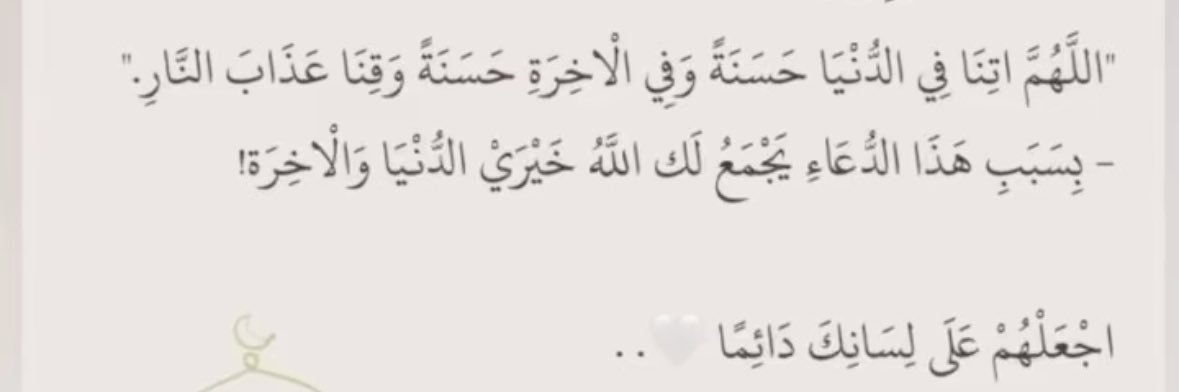 "اللَّهُمَّ اتِنَا فِي الدُّنْيَا حَسَنَةً وَفِي الْاخِرَةِ حَسَنَةً وَقِنَا عَذَابَ النَّارِ."
- بِسَبَبِ هَذَا الدُّعَاءِ يَجْمَعُ لَك اللَّهُ خَيْرَيْ الدُّنْيَا وَالْاخِرَة!
اجْعَلْهُمْ عَلَى لِسَانِكَ دَائِمًا 🤍..